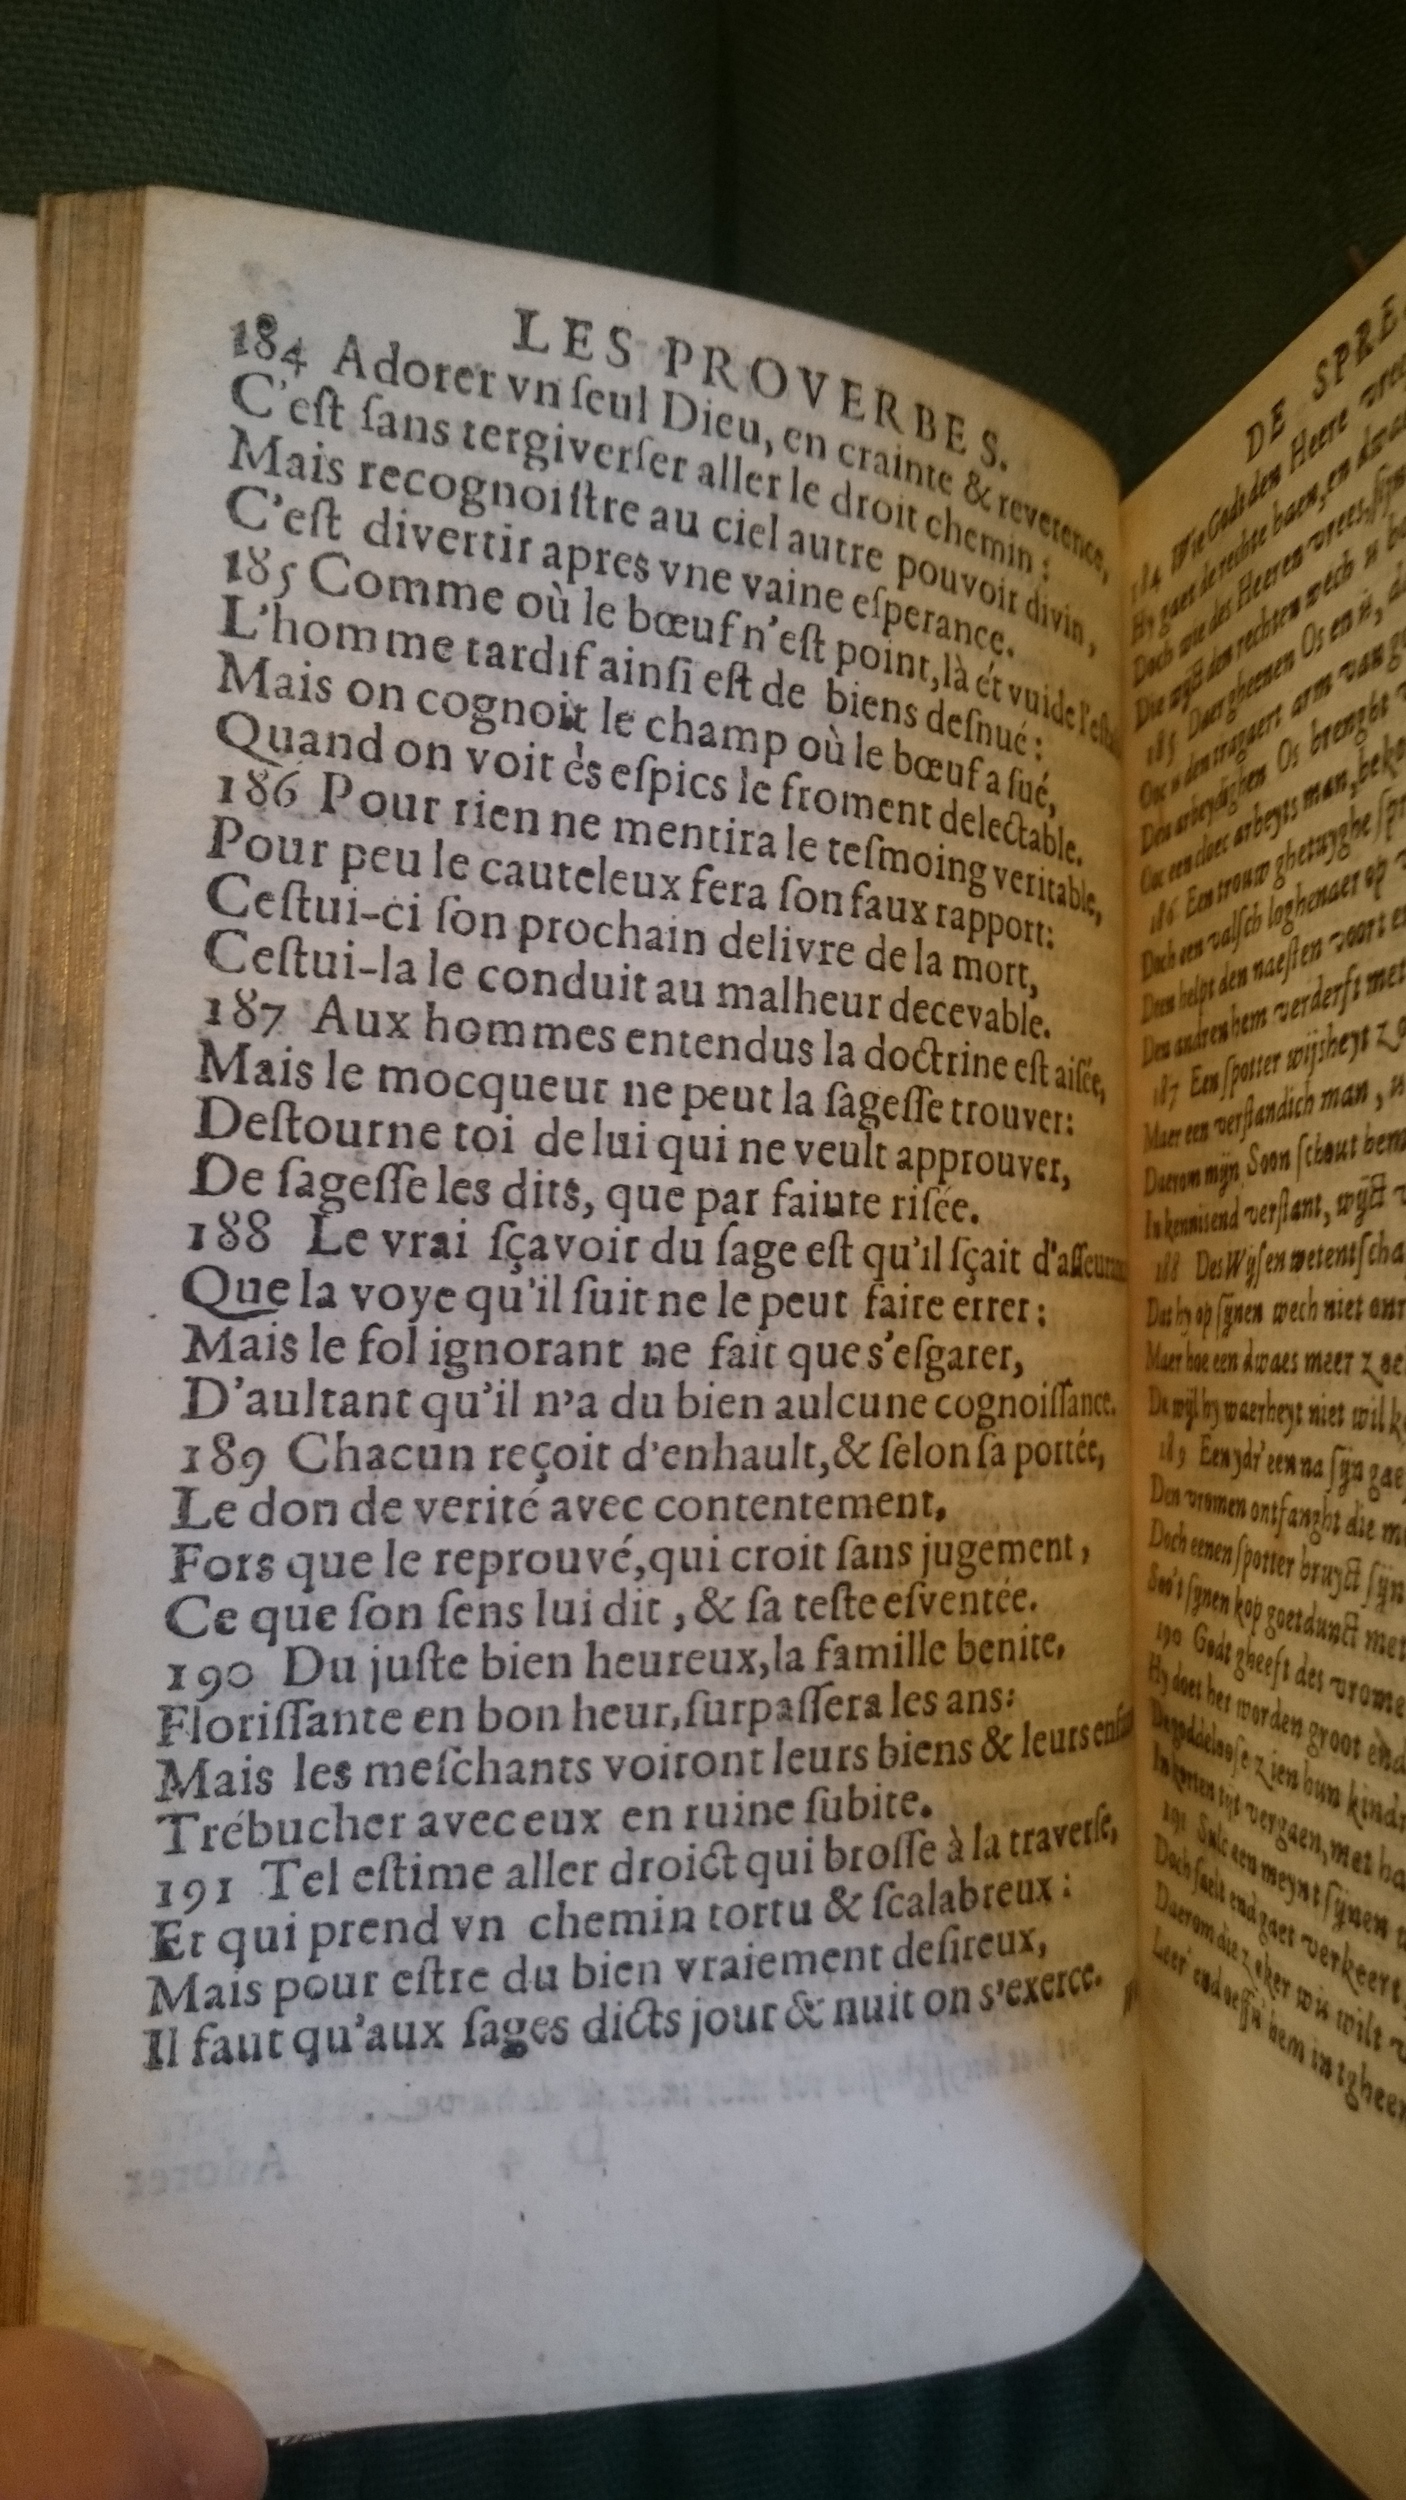 LES PROVERBES.
184 Adorer vn ſeul Dieu, en crainte & reverence,
C'eſt ſans tergiverſer aller le droit chemin :
Mais recognoiſtre au ciel autre pouvoir divin,
C'eſt divertir apres vne vaine eſperance.
185 Comme où le bœuf n'eſt point, là ét vuide
L'homme tardif ainſi eſt de biens deſnué :
Mais on cognoit le champ où le bœuf a ſué,
Quand on voit és eſpics le froment delectable.
186 Pour rien ne mentira le teſmoing veritable,
Pour peu le cauteleux fera ſon faux rapport:
Ceſtui-ci ſon prochain delivre de la mort,
Ceſtui-la le conduit au malheur decevable.
187 Aux hommes entendus la doctrine eſt aiſée,
Mais le mocqueur ne peut la ſageſſe trouver:
Deſtourne toi de lui qui ne veult approuver,
De ſageſſe les dits, que par fainte riſée.
188 Le vrai ſçavoir du ſage eſt qu'il ſçait
Que la voye qu'il ſuit ne le peut faire errer :
Mais le fol ignorant ne fait que s'eſgarer,
D'aultant qu'il n'a du bien aulcune cognoiſſance.
189 Chacun reçoit d'enhault, & ſelon ſa portée,
Le don de verité avec contentement,
Fors que le reprouvé, qui croit ſans jugement,
Ce que ſon ſens lui dit, & ſa teſte eſventée.
190 Du juſte bien heureux, la famille benite,
Floriſſante en bon heur, ſurpaſſera les ans:
Mais les meſchants voiront leurs biens & leurs
Trébucher avec eux en ruine ſubite.
191 Tel eſtime aller droict qui broſſe à la traverſe,
Et qui prend vn chemin tortu & ſcalabreux :
Mais pour eſtre du bien vraiement deſireux,
Il faut qu'aux ſages dicts jour & nuit on s'exerce.
DE
184 Wie Godt den Heere
Hy gaet de rechte baen, en
Doch wie des Heeren vrees,
Die wijct den rechten wech
185 Daer gheenen Os en is,
Ooc is den tragaert arm van
Den arbeydighen Os brenght
Ooc een cloec arbeyts man,
186 Een trouw ghetuyghe
Doch een valſch loghenaer op
Deen helpt den naeſten voort
Den andren hem verderft met
187 Een ſpotter wijsheyt
Maer een verſtandich man,
Daerom mijn Soon ſchout hem
In kennis end verſtant, wijct
188 Des Wyſen wetentſcha
Dat hy op ſijnen wech niet
Maer hoe een dwaes meer
De wijl hy waerheyt niet wil
189 Een yder een na ſijn
Den vromen ontfanght die
Doch eenen ſpotter bruyct ſijn
Soo't ſijnen kop goetdunct met
190 Godt gheeft des
Hy doet het worden groot
De goddelooſe zien hun
In korten tijt vergaen, met
191 Sulc een meynt ſijnen
Doch faelt end gaet verkeert,
Daerom die zeker wis wilt
Leer' end oeffn' hem in